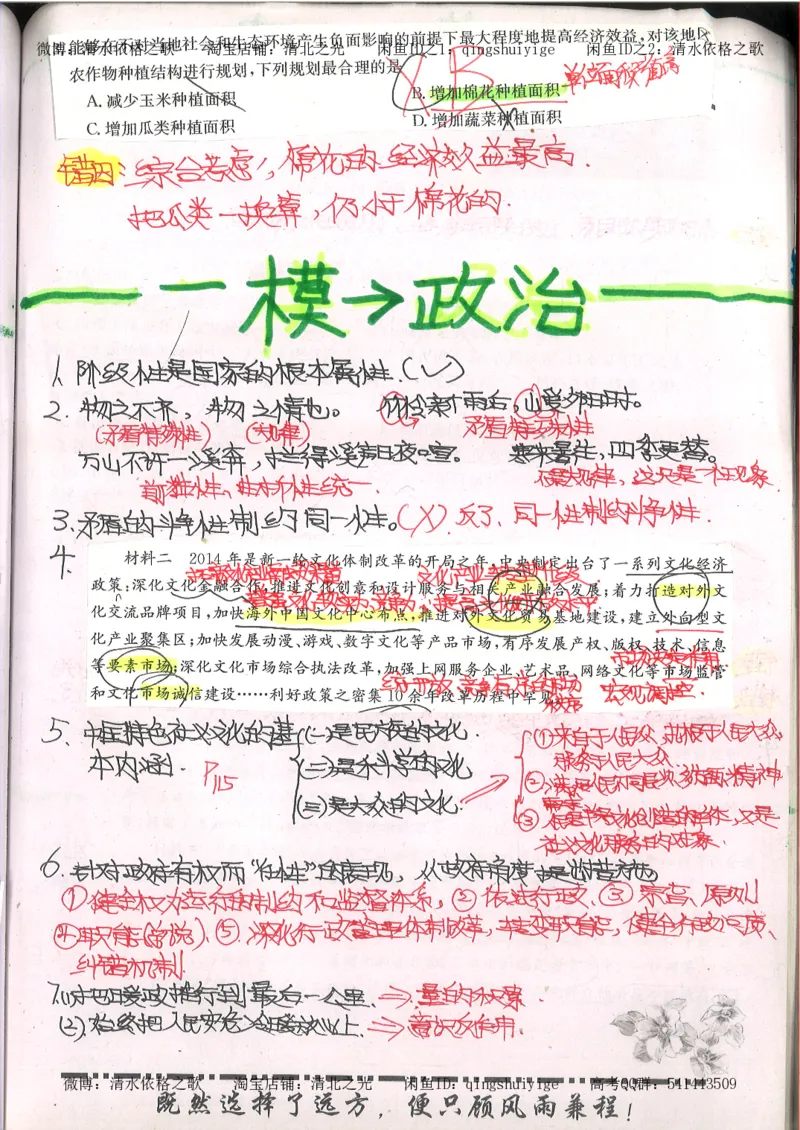 能够在不对当地社会和生态环境产生负面影响的前提下最大程度地提高经济效益,对该地区
微博:清水依格之歌 淘宝店铺:清北之光 闲鱼ID之1:qingshuiyige 闲鱼ID之2:清水依格之歌
农作物种植结构进行规划,下列规划最合理的是
A.减少玉米种植面积 B.增加棉花种植面积
C.增加瓜类种植面积 D.增加蔬菜种植面积
B
错因:综合考虑,棉花的经济效益最高.
把瓜类一换算,仍小于棉花的.
一模→政治
1、阶级性是国家的根本属性.(√)
2.物之不齐,物之情也。 山爱夕阳时。
(矛盾特殊性) (规律) 矛盾特殊性
万山不许一溪奔,拦得溪声日夜喧。 寒来暑往,四季更替。
前进性、曲折性统一. 不是规律,这只是一种现象.
3.矛盾的斗争性制约同一性。(×)反了、同一性制约斗争性.
4.
材料二 2014年是新一轮文化体制改革的开局之年,中央制定出台了一系列文化经济
政策:深化文化金融合作,推进文化创意和设计服务与相关产业融合发展;着力打造对外文
化交流品牌项目,加快海外中国文化中心布点,推进对外文化贸易基地建设,建立外向型文
化产业聚集区;加快发展动漫、游戏、数字文化等产品市场,有序发展产权、版权、技术、信息
等要素市场;深化文化市场综合执法改革,加强上网服务企业、艺术品、网络文化等市场监管
和文化市场诚信建设……利好政策之密集10余年改革历程中罕见
宏观调控.
5、中国特色社会主义文化的基本内涵. P115
(一)是民族的文化.
(二)是科学的文化
(三)是大众的文化.
①来自于人民大众,服务于人民大众
②满足人民不同层次、多方面精神需求
③人民是文化创造的主体,又是
6.针对政府有权而“任性”的表现,从政府角度提出措施
①健全权力运行的制约和监督体系,②依法行政、③宗旨、原则
④职能(分说)、⑤深化行政管理体制改革,转变职能,健全
纠错机制
7.(1)把政策推行到“最后一公里”.⇒量的积累.
(2)、始终把人民安危冷暖放心上.⇒意识反作用.
微博:清水依格之歌 淘宝店铺:清北之光 闲鱼ID:qingshuiyige 高考QQ群:541443509
既然选择了远方,便只顾风雨兼程!